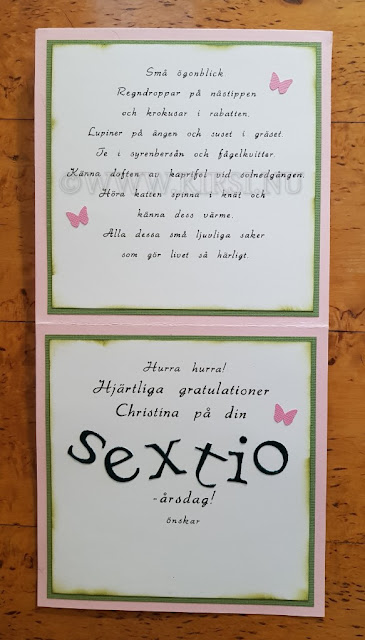 Små ögonblick
Regndroppar på nästippen
och krokusar i rabatten.
Lupiner på ängen och suset i gräset.
Te i syrenbersån och fågelkvitter.
Känna doften av kaprifol vid solnedgången.
©WWW.KIRSI.NU
Höra katten spinna i knät och
känna dess värme.
Alla dessa små ljuvliga saker
som gör livet så härligt.
Hurra hurra!
Hjärtliga gratulationer
Christina på din
sextio
-årsdag!
önskar